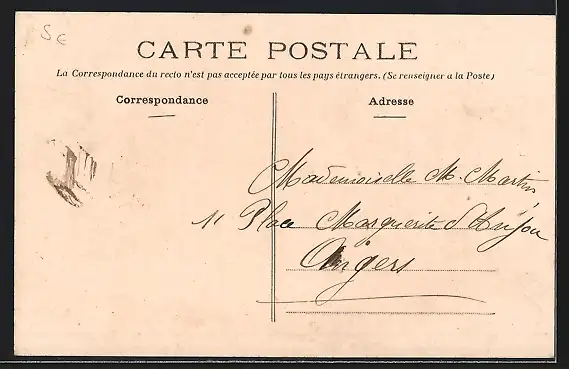 5 €
CARTE POSTALE
La Correspondance du recto n'est pas acceptée par tous les pays étrangers. (Se renseigner a la Poste)
Correspondance
Adresse
Mademoiselle M. Martin
11 Place Marguerite d'Anjou
Angers